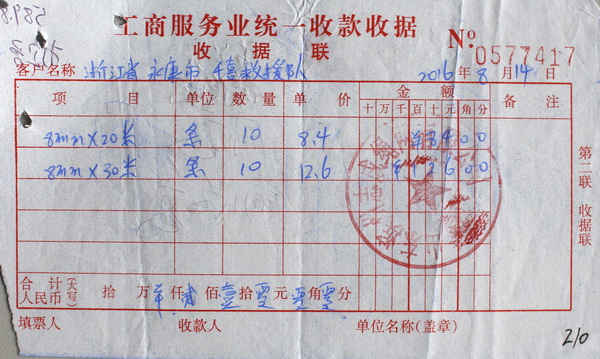 工商服务业统一收款收据
收据联
No. 0577417
客户名称 浙江省永康市 救援队 2016年8月14日
项目 单位 数量 单价 金额 备注
十万千百十元角分
8mm×20米 条 10 8.4 ¥8400
8mm×30米 条 10 12.6 ¥12600
合计人民币(大写) 拾 万 ¥仟贰佰壹拾零元零角零分
填票人 收款人 单位名称(盖章)
第二联 收据联
210